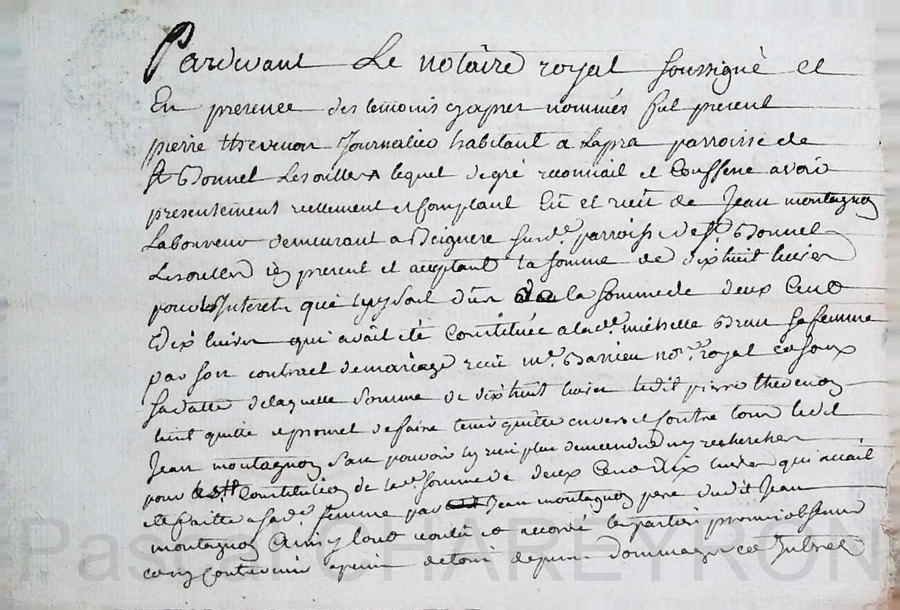 Pardevant Le notaire royal soussigné et
En presence des temoins cyapres nommés fut present
pierre thevenon Journalier habitant a Lapra parroisse de
St Bonnet Lesoulles lequel de gré reconnait et Confesse avoir
presentement reellement et Comptant Eu et receu de Jean montagnon
Laboureur demeurant a parroisse de St Bonnet
Lesoulles icy present et aceptant la somme de dixhuit livres
pour Interets que luy sont dus de la somme de deux Cent
Dix livres qui avait été Constituée a lad. michelle Brun sa femme
par son contract de mariage receu me. Barrieu nore. royal
sa datte de laquelle somme de dixhuit livres ledit pierre thevenon
tient quitte et promet de faire tenir quitte envers et contre tous ledit
Jean montagnon sans pouvoir luy rien plus demender ny rechercher
pour Constitution de lad. somme de deux Cent Dix livres qui avait
été faitte a sad. femme par Jean montagnon pere dudit Jean
montagnon Ainsy tout voulu et accordé les parties promis observer
a peine de tous depens dommages et Interets
Pascal CHAREYRON